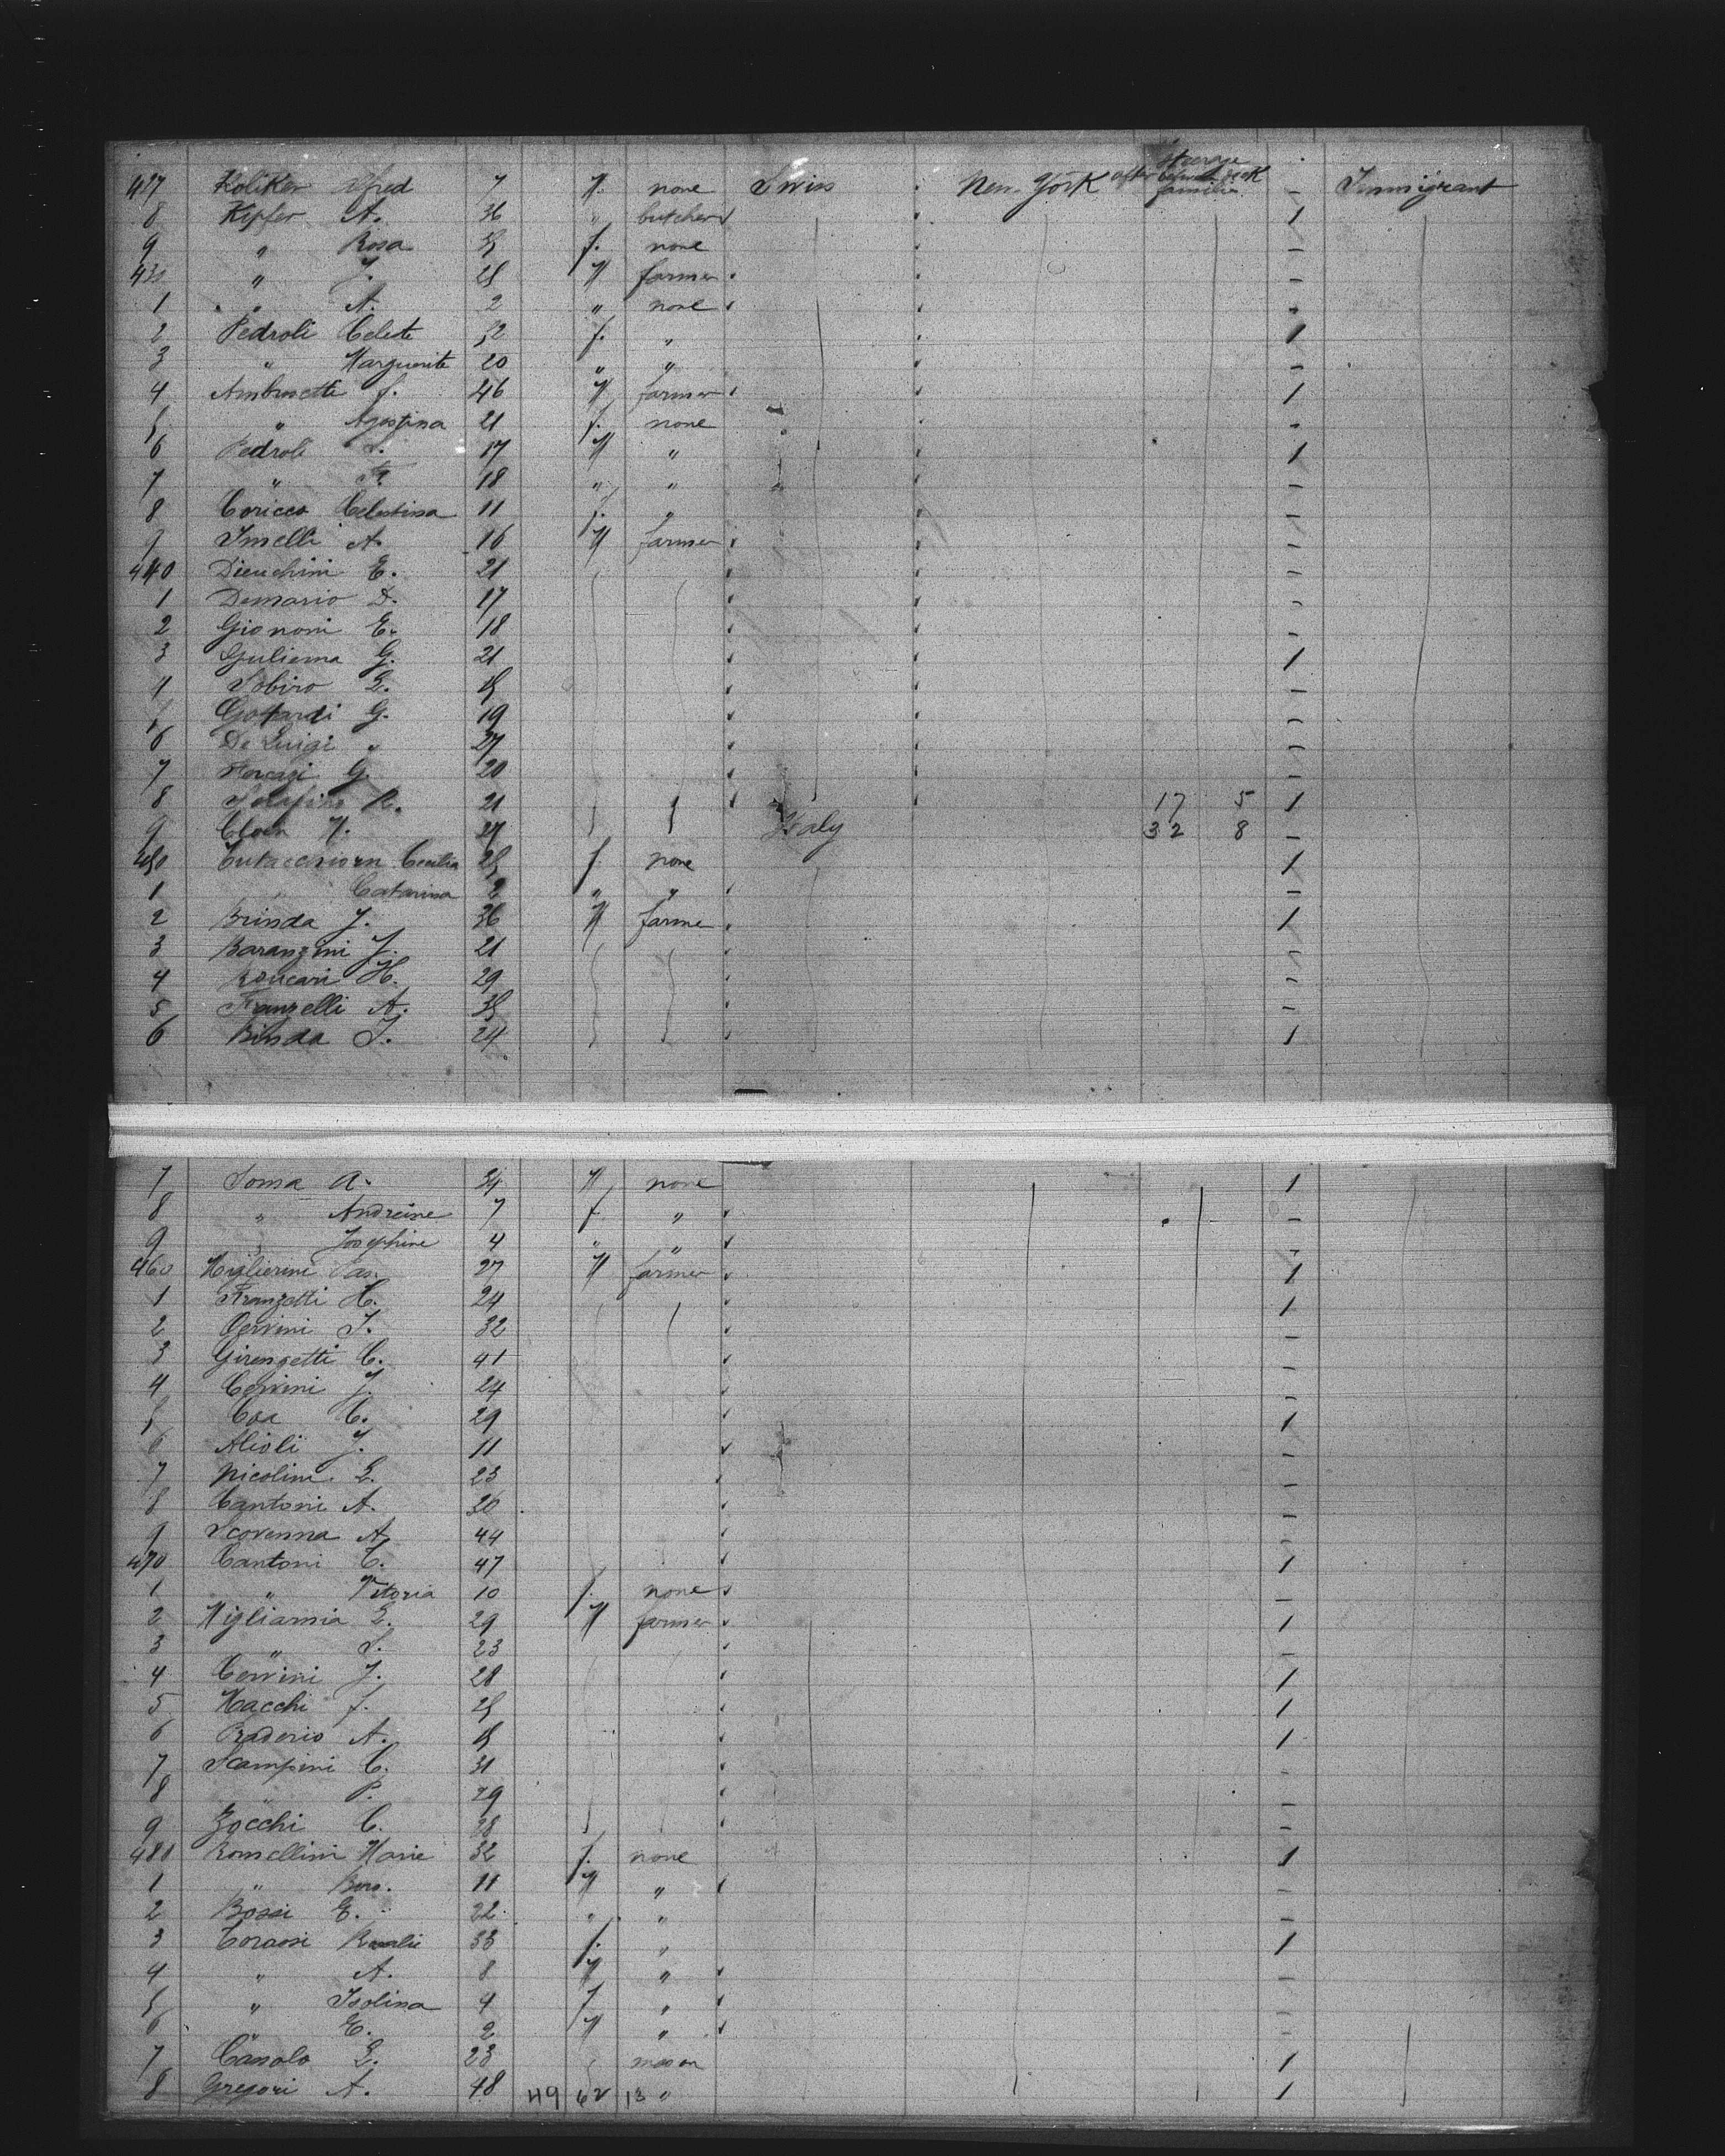 427 Koliker Alfred 7 M. none Swiss New-York steerage after between deck families – Immigrant
8 Kipfer A. 36 " butcher 1
9 " Rosa 35 f. none –
430 " J. 25 M farmer –
1 " A. 2 " none –
2 Pedroli Celeste 52 f. " 1
3 " Marguerite 20 " " –
4 Ambrosetti f. 46 M farmer 1
5 " Agostina 21 f. none –
6 Pedroli S. 17 M " 1
7 " F. 18 " " –
8 Coricco Celestina 11 f. " –
9 Imelli A. 16 M farmer –
440 Dieuchini E. 21 –
1 Demario D. 17 –
2 Giononi E. 18 –
3 Guliema G. 21 1
4 Sobiro E. 15 –
5 Gotardi G. 19 –
6 De Luigi " 27 –
7 G. 20 –
8 Serafino R. 21 17 5 1
9 M. 27 Italy 32 8 –
450 Cecilia 25 f. none 1
1 " Catarina 2 " " –
2 Brinda J. 36 M farmer 1
3 Baranzini J. 21 –
4 Roncari H. 29 –
5 Franzelli A. 35 –
6 Binda J. 24 1
7 Soma A. 34 M none 1
8 " Andreine 7 f. " –
9 " Josephine 4 " " –
460 Miglierini Pas. 27 M farmer 1
1 Franzetti H. 24 1
2 Cervini J. 32 –
3 Girenzetti C. 41 –
4 Cervini J. 24 –
5 Coa C. 29 1
6 Alioli J. 11 –
7 Nicolini E. 23 –
8 Cantoni A. 26 –
9 Scovenna A. 44 –
470 Cantoni C. 47 1
1 " Vitoria 10 f. none –
2 Migliarnia E. 29 M farmer 1
3 " S. 23 –
4 Cervini J. 28 1
5 Macchi f. 25 1
6 Praderio A. 15 1
7 Scampini C. 31 –
8 " P. 29 –
9 Zocchi C. 28 –
480 Romellini Marie 32 f. none 1
1 " Bero. 11 M " –
2 Bossi E. 22 " " –
3 Corassi Rosalie 33 f. " 1
4 " A. 8 M " –
5 " Isolina 4 f " –
6 " E. 2 M " –
7 Casolo E. 23 mason 1
8 Gregori A. 48 49 62 13 " 1